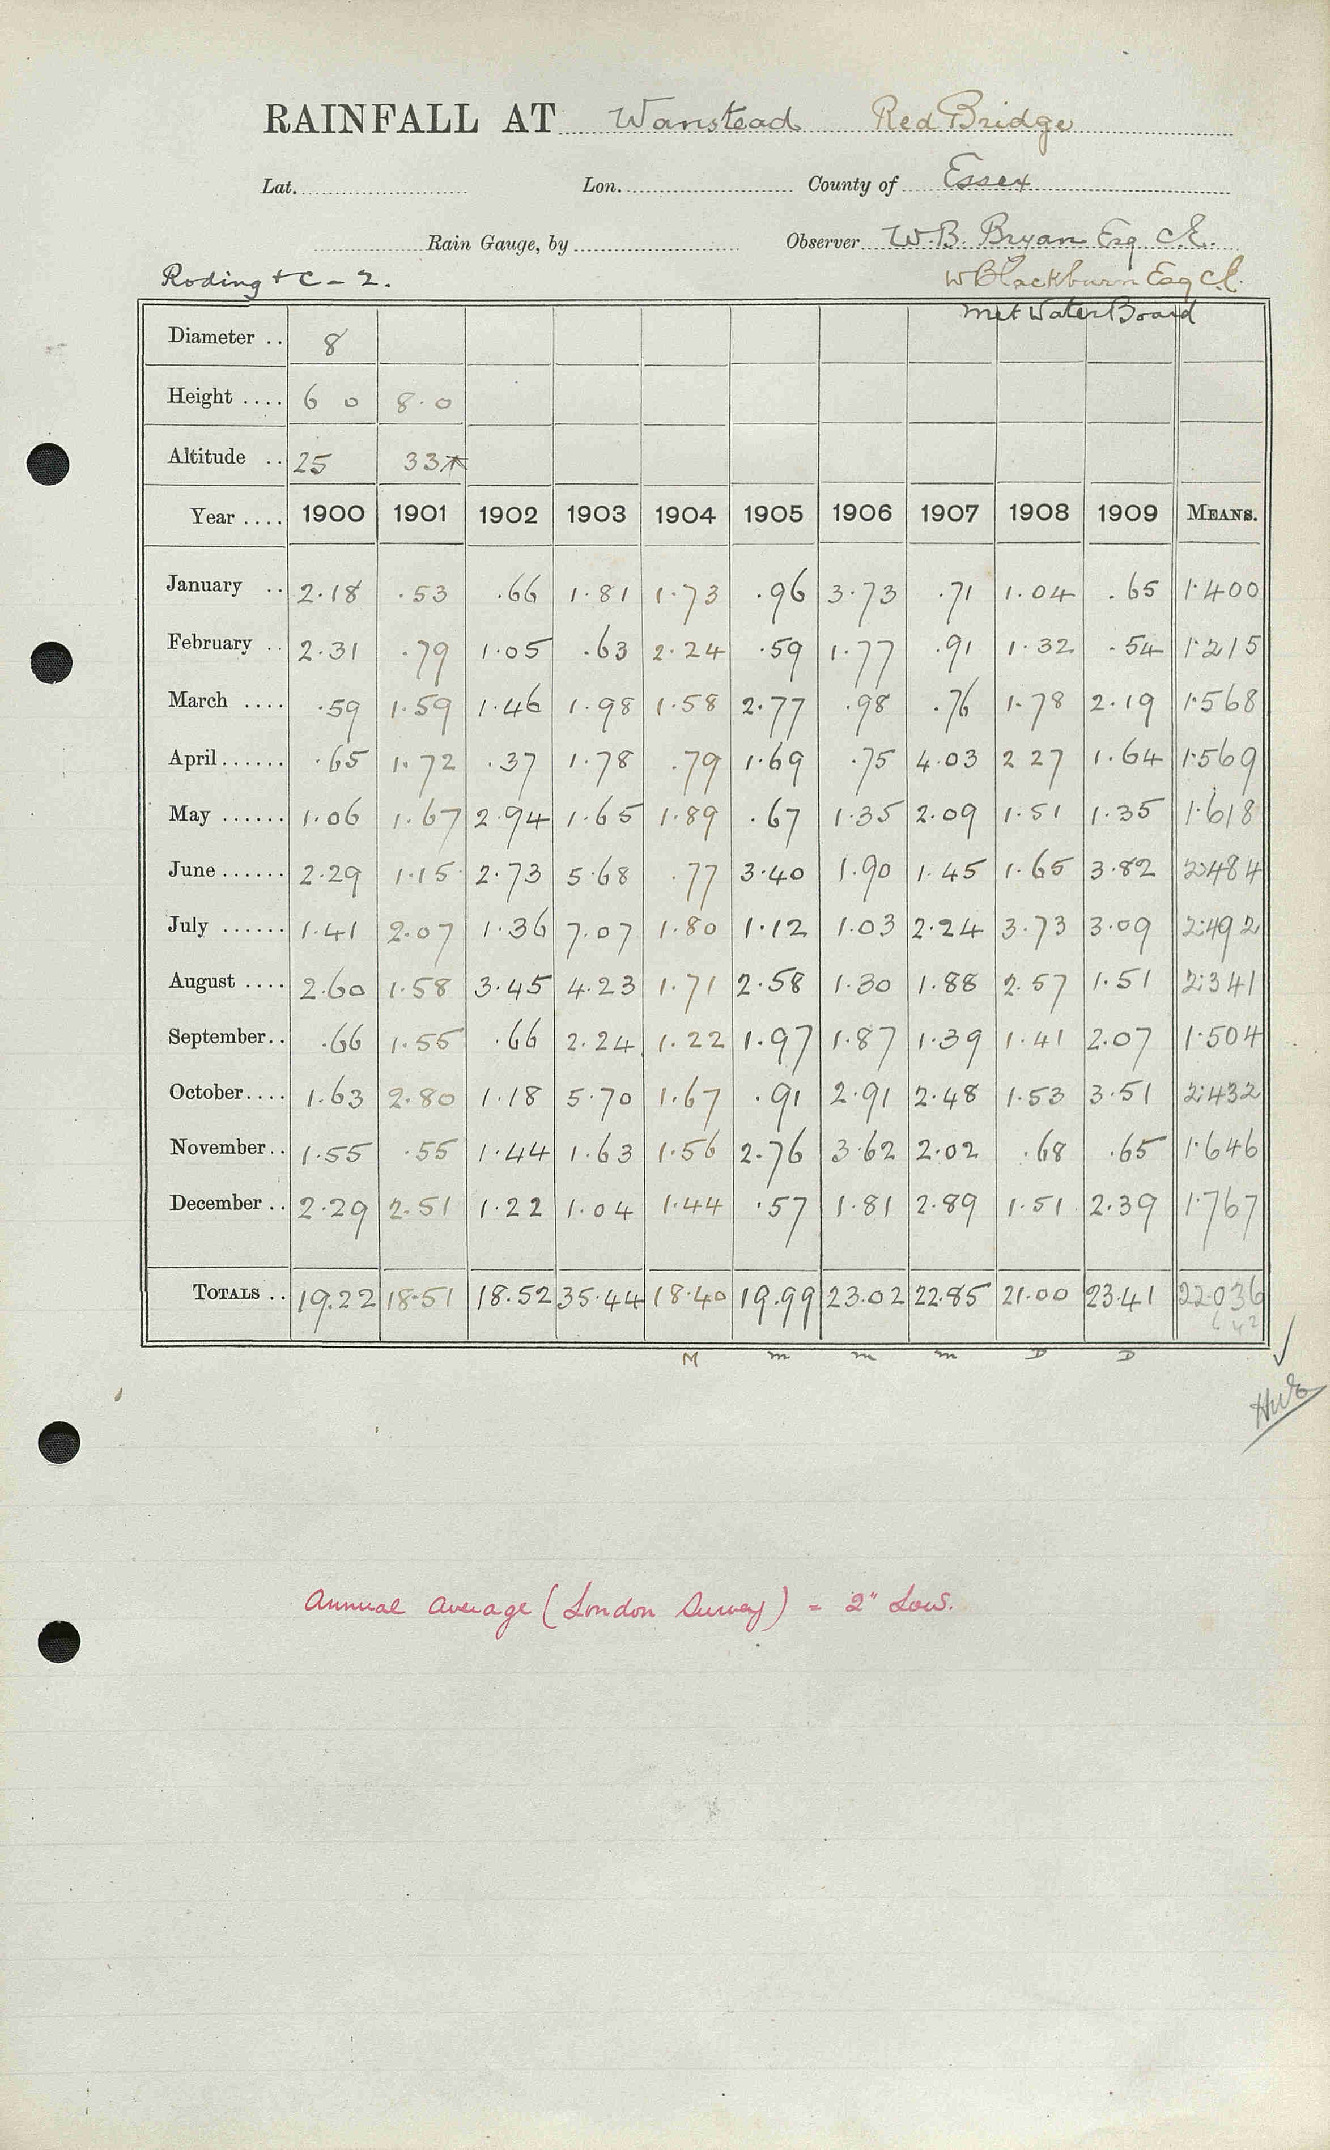 RAINFALL AT Wanstead Red Bridge
Lat. Lon. County of Essex
Rain Gauge, by Observer W.B. Bryan Esq C.E.
Roding + C - 2. W Blackburn Esq C.E.
Met Water Board
Diameter .. 8
Height .... 6 0 8.0
Altitude .. 25 33
Year .... 1900 1901 1902 1903 1904 1905 1906 1907 1908 1909 MEANS.
January .. 2.18 .53 .66 1.81 1.73 .96 3.73 .71 1.04 .65 1.400
February .. 2.31 .79 1.05 .63 2.24 .59 1.77 .91 1.32 .54 1.215
March .... .59 1.59 1.46 1.98 1.58 2.77 .98 .76 1.78 2.19 1.568
April...... .65 1.72 .37 1.78 .79 1.69 .75 4.03 2 27 1.64 1.569
May ...... 1.06 1.67 2.94 1.65 1.89 .67 1.35 2.09 1.51 1.35 1.618
June...... 2.29 1.15 2.73 5.68 .77 3.40 1.90 1.45 1.65 3.82 2.484
July ...... 1.41 2.07 1.36 7.07 1.80 1.12 1.03 2.24 3.73 3.09 2.492
August .... 2.60 1.58 3.45 4.23 1.71 2.58 1.30 1.88 2.57 1.51 2.341
September.. .66 1.55 .66 2.24 1.22 1.97 1.87 1.39 1.41 2.07 1.504
October.... 1.63 2.80 1.18 5.70 1.67 .91 2.91 2.48 1.53 3.51 2.432
November.. 1.55 .55 1.44 1.63 1.56 2.76 3.62 2.02 .68 .65 1.646
December .. 2.29 2.51 1.22 1.04 1.44 .57 1.81 2.89 1.51 2.39 1.767
TOTALS .. 19.22 18.51 18.52 35.44 18.40 19.99 23.02 22.85 21.00 23.41 22.036
M m m m D D
Annual average (London Survey) = 2" Low.